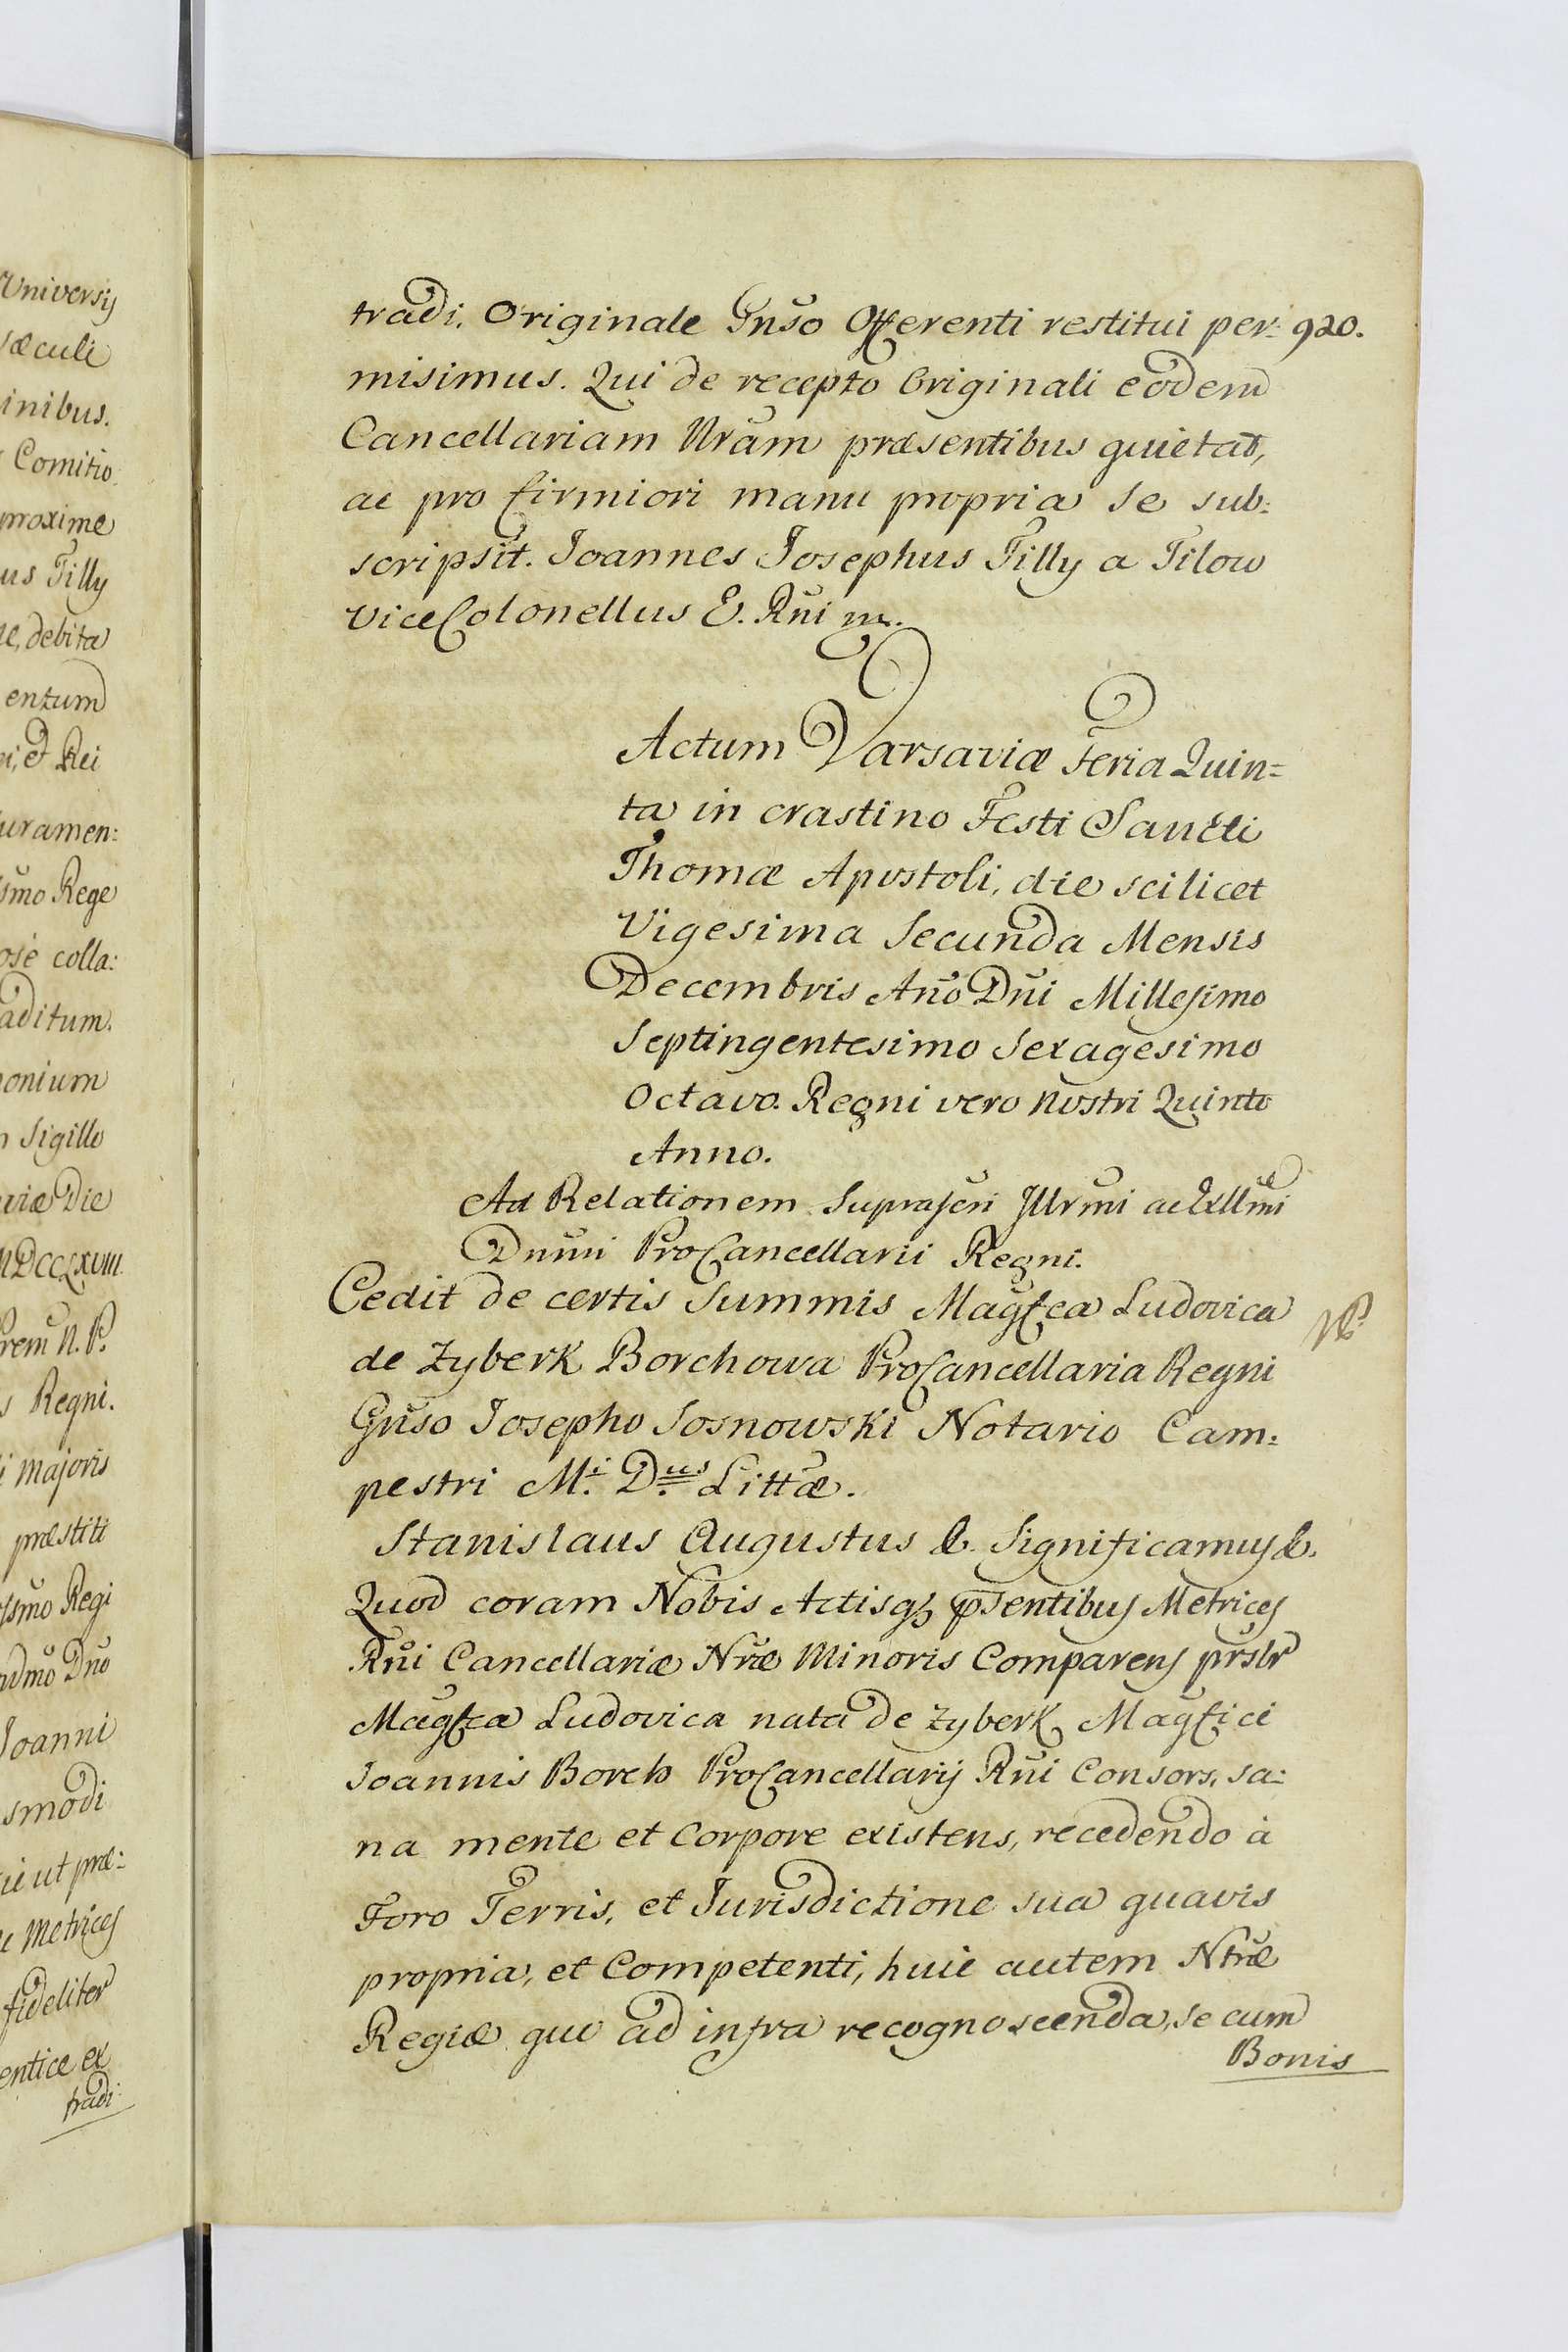 Universij
sæculi
inibus.
Comitio
proxime
us Tilly
debita
entum
et Rei
juramen:
smo Rege
ose colla:
aditum.
monium
Sigillo
viæ Die
MDCCLXVIII.
rem N. P.
s Regni.
majoris
præstiti
smo Regi
Dno
Joanni
smodi
ut præ:
Metrices
fideliter
entice ex
tradi
tradi. Originale Gnso Offerenti restitui per: 920.
misimus. Qui de recepto Originali eodem
Cancellariam Nram præsentibus quietat,
ac pro firmiori manu propria se sub:
scripsit. Joannes Josephus Tilly a Tilow
ViceColonellus E. Rni m.
Actum Varsaviæ Feria Quin=
ta in crastino Festi Sancti
Thomæ Apostoli, die scilicet
Vigesima Secunda Mensis
Decembris Año Dñi Millesimo
Septingentesimo Sexagesimo
Octavo. Regni vero nostri Quinto
Anno.
Ad Relationem Suprascri Jllrmi ac Exllmi
Dnmi ProCancellarii Regni.
Cedit de certis Summis Magfca Ludovica
de Zyberk Borchowa ProCancellaria Regni
Gnso Josepho Sosnowski Notario Cam:
pestri M.i D.us Littæ.
Stanislaus Augustus &. Significamus &.
Quod coram Nobis Actisq; psentibus Metrices
Rñi Cancellariæ Nræ Minoris Comparens prslr
Magfca Ludovica nata de Zyberk Magfici
Joannis Borch ProCancellarij Rñi Consors, sa:
na mente et Corpore existens, recedendo à
Foro Terris, et Jurisdictione sua quavis
propria, et Competenti, huic autem Ntræ
Regiæ quo ad infra recognoscenda, se cum
Bonis